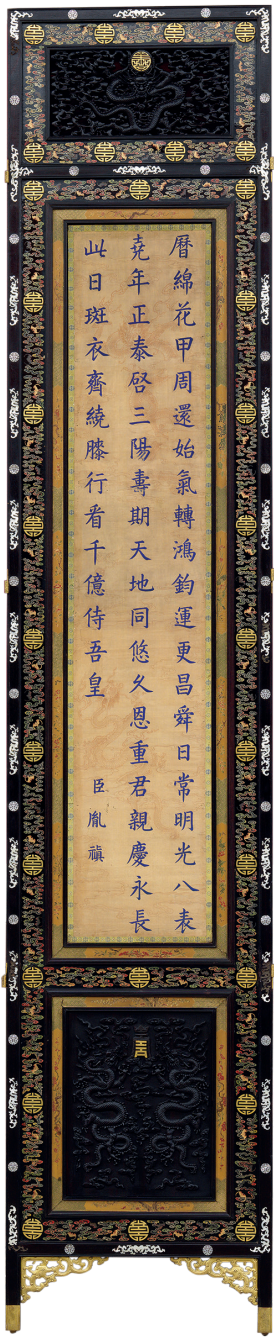 曆綿花甲周還始氣轉鴻鈞運更昌舜日常明光八表
堯年正泰啓三陽壽期天地同悠久恩重君親慶永長
此日斑衣齊繞膝行看千億侍吾皇
臣胤禛